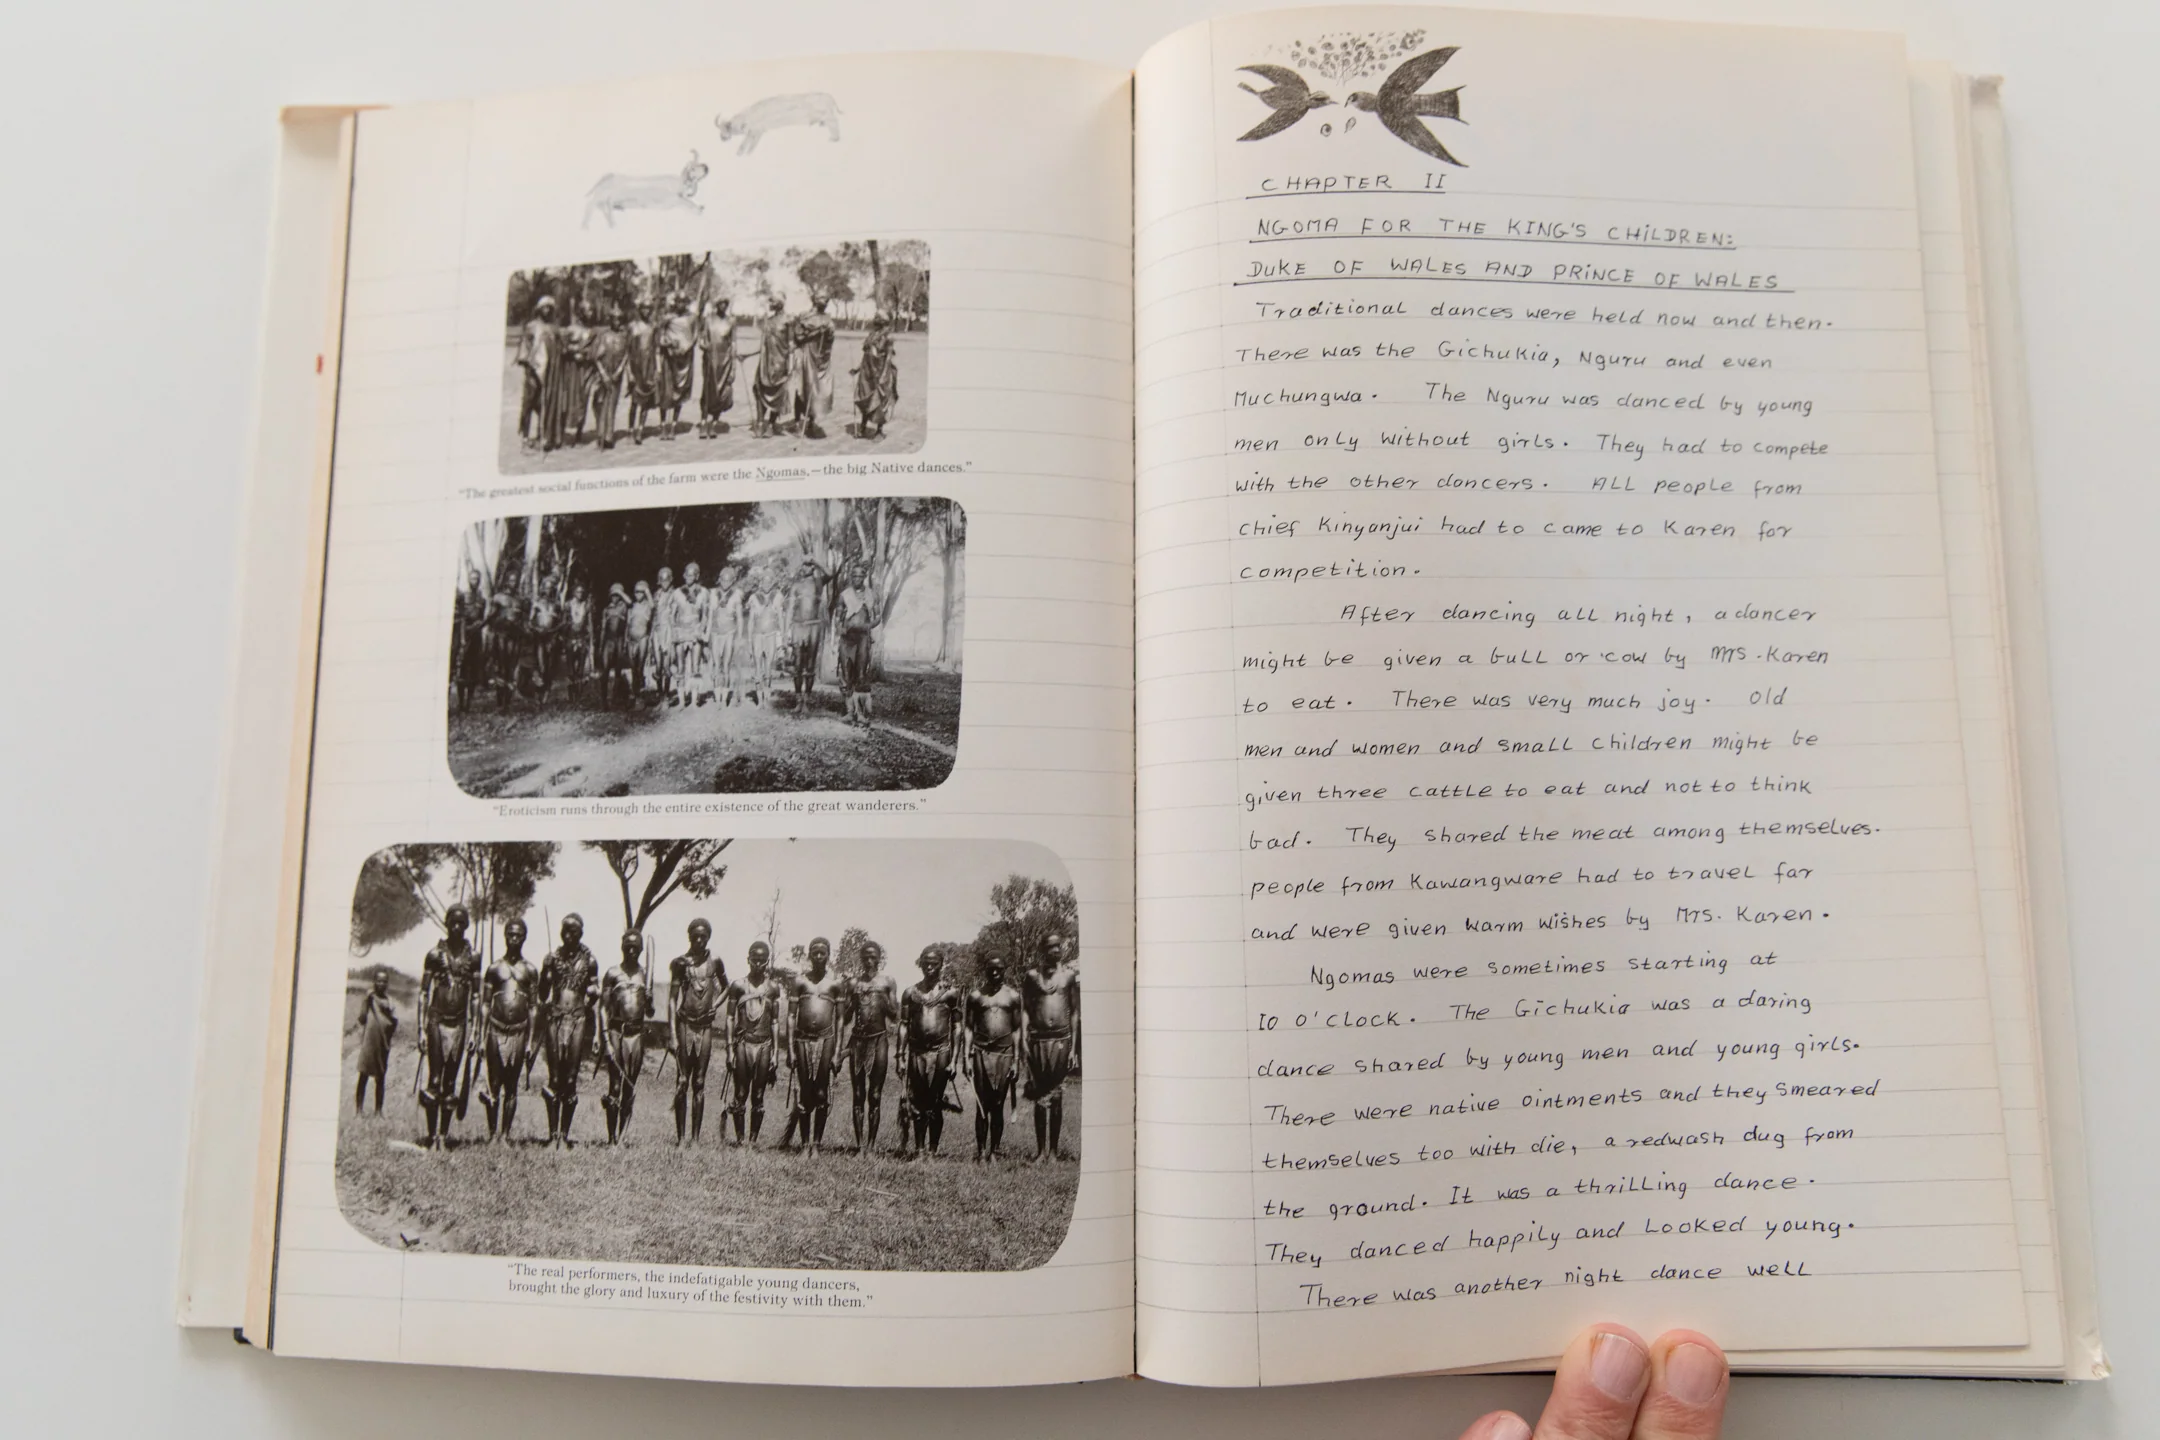 "The greatest social functions of the farm were the Ngomas,—the big Native dances."
"Eroticism runs through the entire existence of the great wanderers."
"The real performers, the indefatigable young dancers,
brought the glory and luxury of the festivity with them."
CHAPTER II
NGOMA FOR THE KING'S CHiLDREN:
DUKE OF WALES AND PRiNCE OF WALES
Traditional dances were held now and then.
There was the Gichukia, Nguru and even
Muchungwa. The Nguru was danced by young
men only without girls. They had to compete
with the other dancers. ALL people from
chief Kinyanjui had to came to Karen for
competition.
After dancing all night, a dancer
might be given a bull or cow by Mrs. Karen
to eat. There was very much joy. Old
men and women and small children might be
given three cattle to eat and not to think
bad. They shared the meat among themselves.
people from Kawangware had to travel far
and were given warm wishes by Mrs. Karen.
Ngomas were sometimes starting at
10 O'CLOCK. The Gichukia was a daring
dance shared by young men and young girls.
There were native ointments and they smeared
themselves too with die, a redwash dug from
the ground. It was a thrilling dance.
They danced happily and Looked young.
There was another night dance well